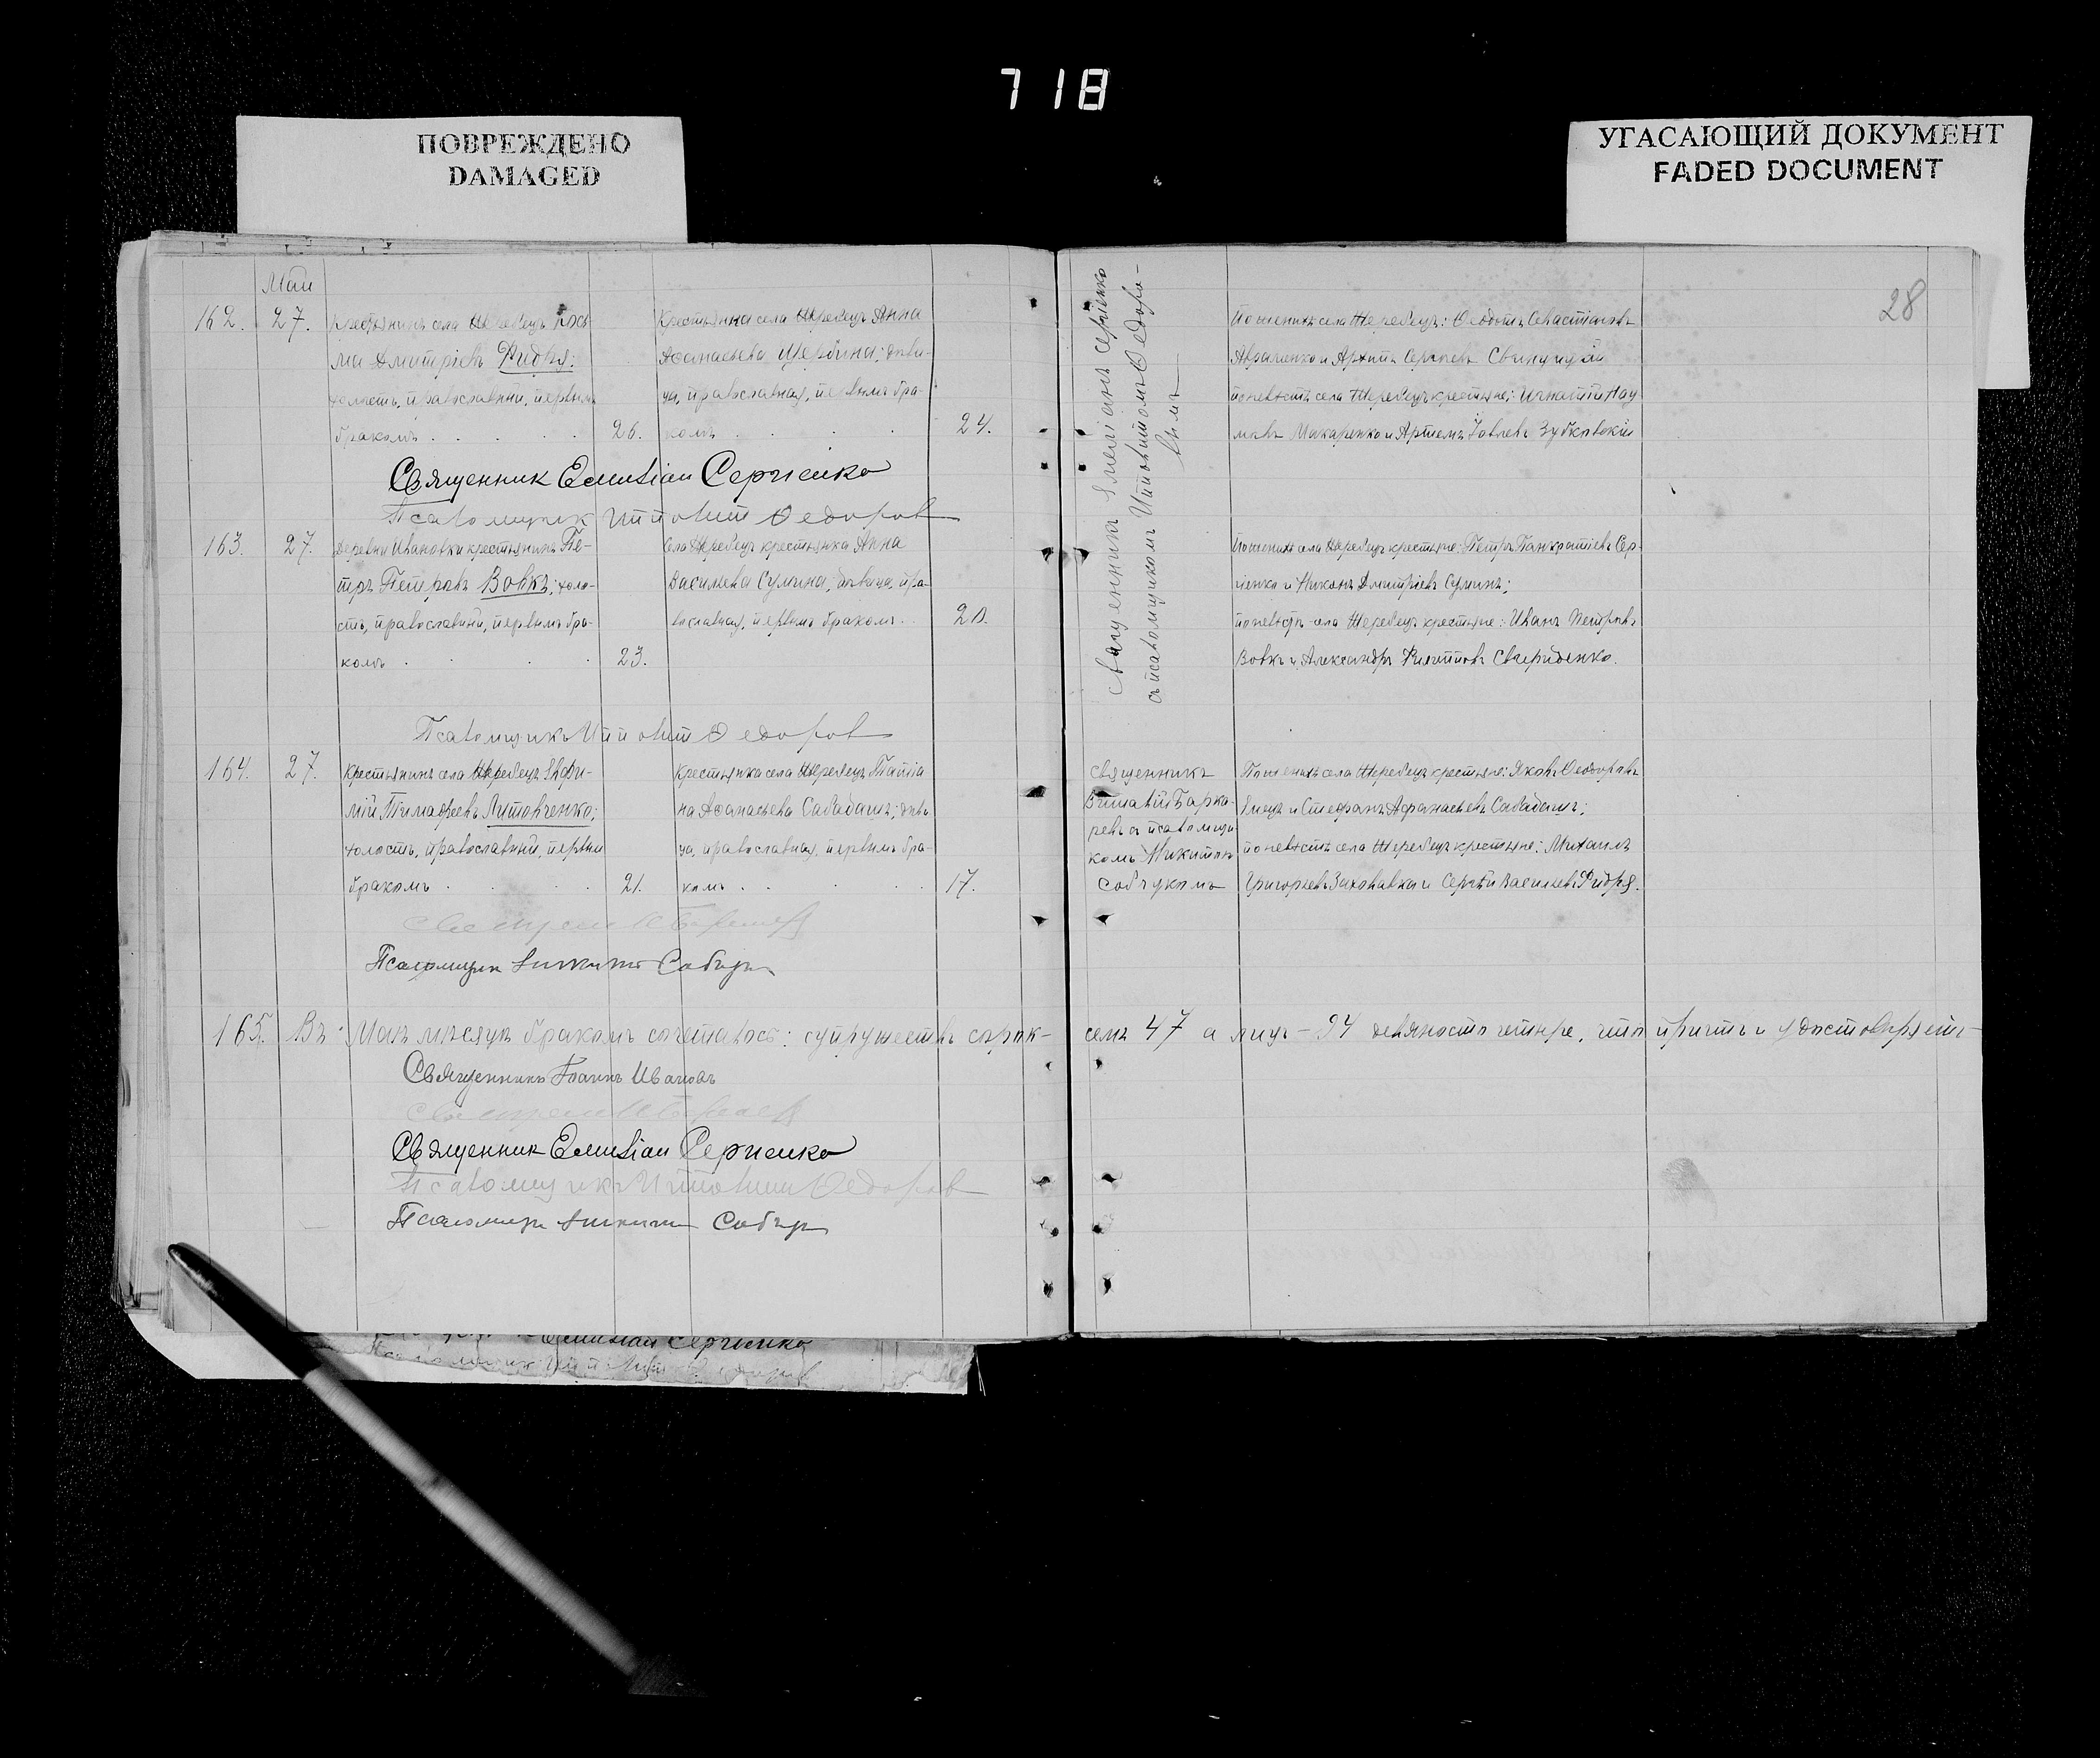 718
ПОВРЕЖДЕНО
DAMAGED
УГАСАЮЩИЙ ДОКУМЕНТ
FADED DOCUMENT
28
Май
162. 27. Крестьянинъ села Жеребецъ Кось-
ма Димитріевъ Фидря;
холостъ, православный, первымъ
бракомъ . . . . 26.
Крестьянка села Жеребецъ Анна
Аѳанасьева Щербина; дѣви-
ца, православная, первымъ бра-
комъ . . . . 24.
Священникъ Емеліанъ Сергіенко
съ псаломщикомъ Ипполитомъ Ѳедоро-
вымъ
По женихѣ села Жеребецъ: Ѳеодотъ Севастіановъ
Авраменко и Архипъ Сергѣевъ
по невѣстѣ села Жеребецъ крестьяне: Игнатій Нау
мовъ Макаренко и Артемъ Іовлевъ Зубковскій
Священник Емеліан Сергіенко
Псаломщик Ипполит Ѳедоров
163. 27. Деревни Ивановки крестьянинъ Пе-
тръ Петровъ Вовкъ; холо-
стъ, православный, первымъ бра-
комъ . . . . 23.
Села Жеребецъ крестьянка Анна
Васильева Сумина, дѣвица, пра-
вославная, первымъ бракомъ . . 20.
По женихѣ села Жеребецъ крестьяне: Петръ Панкратіевъ Сер-
гіенко и Никонъ Дмитріевъ Суминъ;
по невѣстѣ села Жеребецъ крестьяне: Иванъ Петровъ
Вовкъ и Александръ Филипповъ Свириденко.
Псаломщикъ Ипполит Ѳедоров
164. 27. Крестьянинъ села Жеребецъ Евфи-
мій Тимофеевъ Литовченко;
холостъ, православный, первым
бракомъ . . . . 21.
Крестьянка села Жеребецъ Татіа
на Аѳанасьева Сабадашъ; дѣви
ца, православная, первымъ бра-
комъ . . . . 17.
Священникъ
Виталій
ревъ съ псаломщи
комъ Никитою
По женихѣ села Жеребецъ крестьяне: Яковъ Ѳеодоровъ
Емецъ и Стефанъ Афанасьевъ Сабадашъ;
по невѣстѣ села Жеребецъ крестьяне: Михаилъ
Григорьевъ и Сергѣй Васильевъ Фидря.
Псаломщик Никита
165. Въ Маѣ мѣсяцѣ бракомъ сочеталось: супружествъ сорок- семъ 47 а лицъ - 94 девяносто четыре, что причтъ и удостовѣряетъ
Священникъ Іоаннъ Ивановъ
Священник Емеліан Сергіенко
Псаломщикъ Ипполит Ѳедоров
Псаломщик Никита
Емеліан Сергіенко